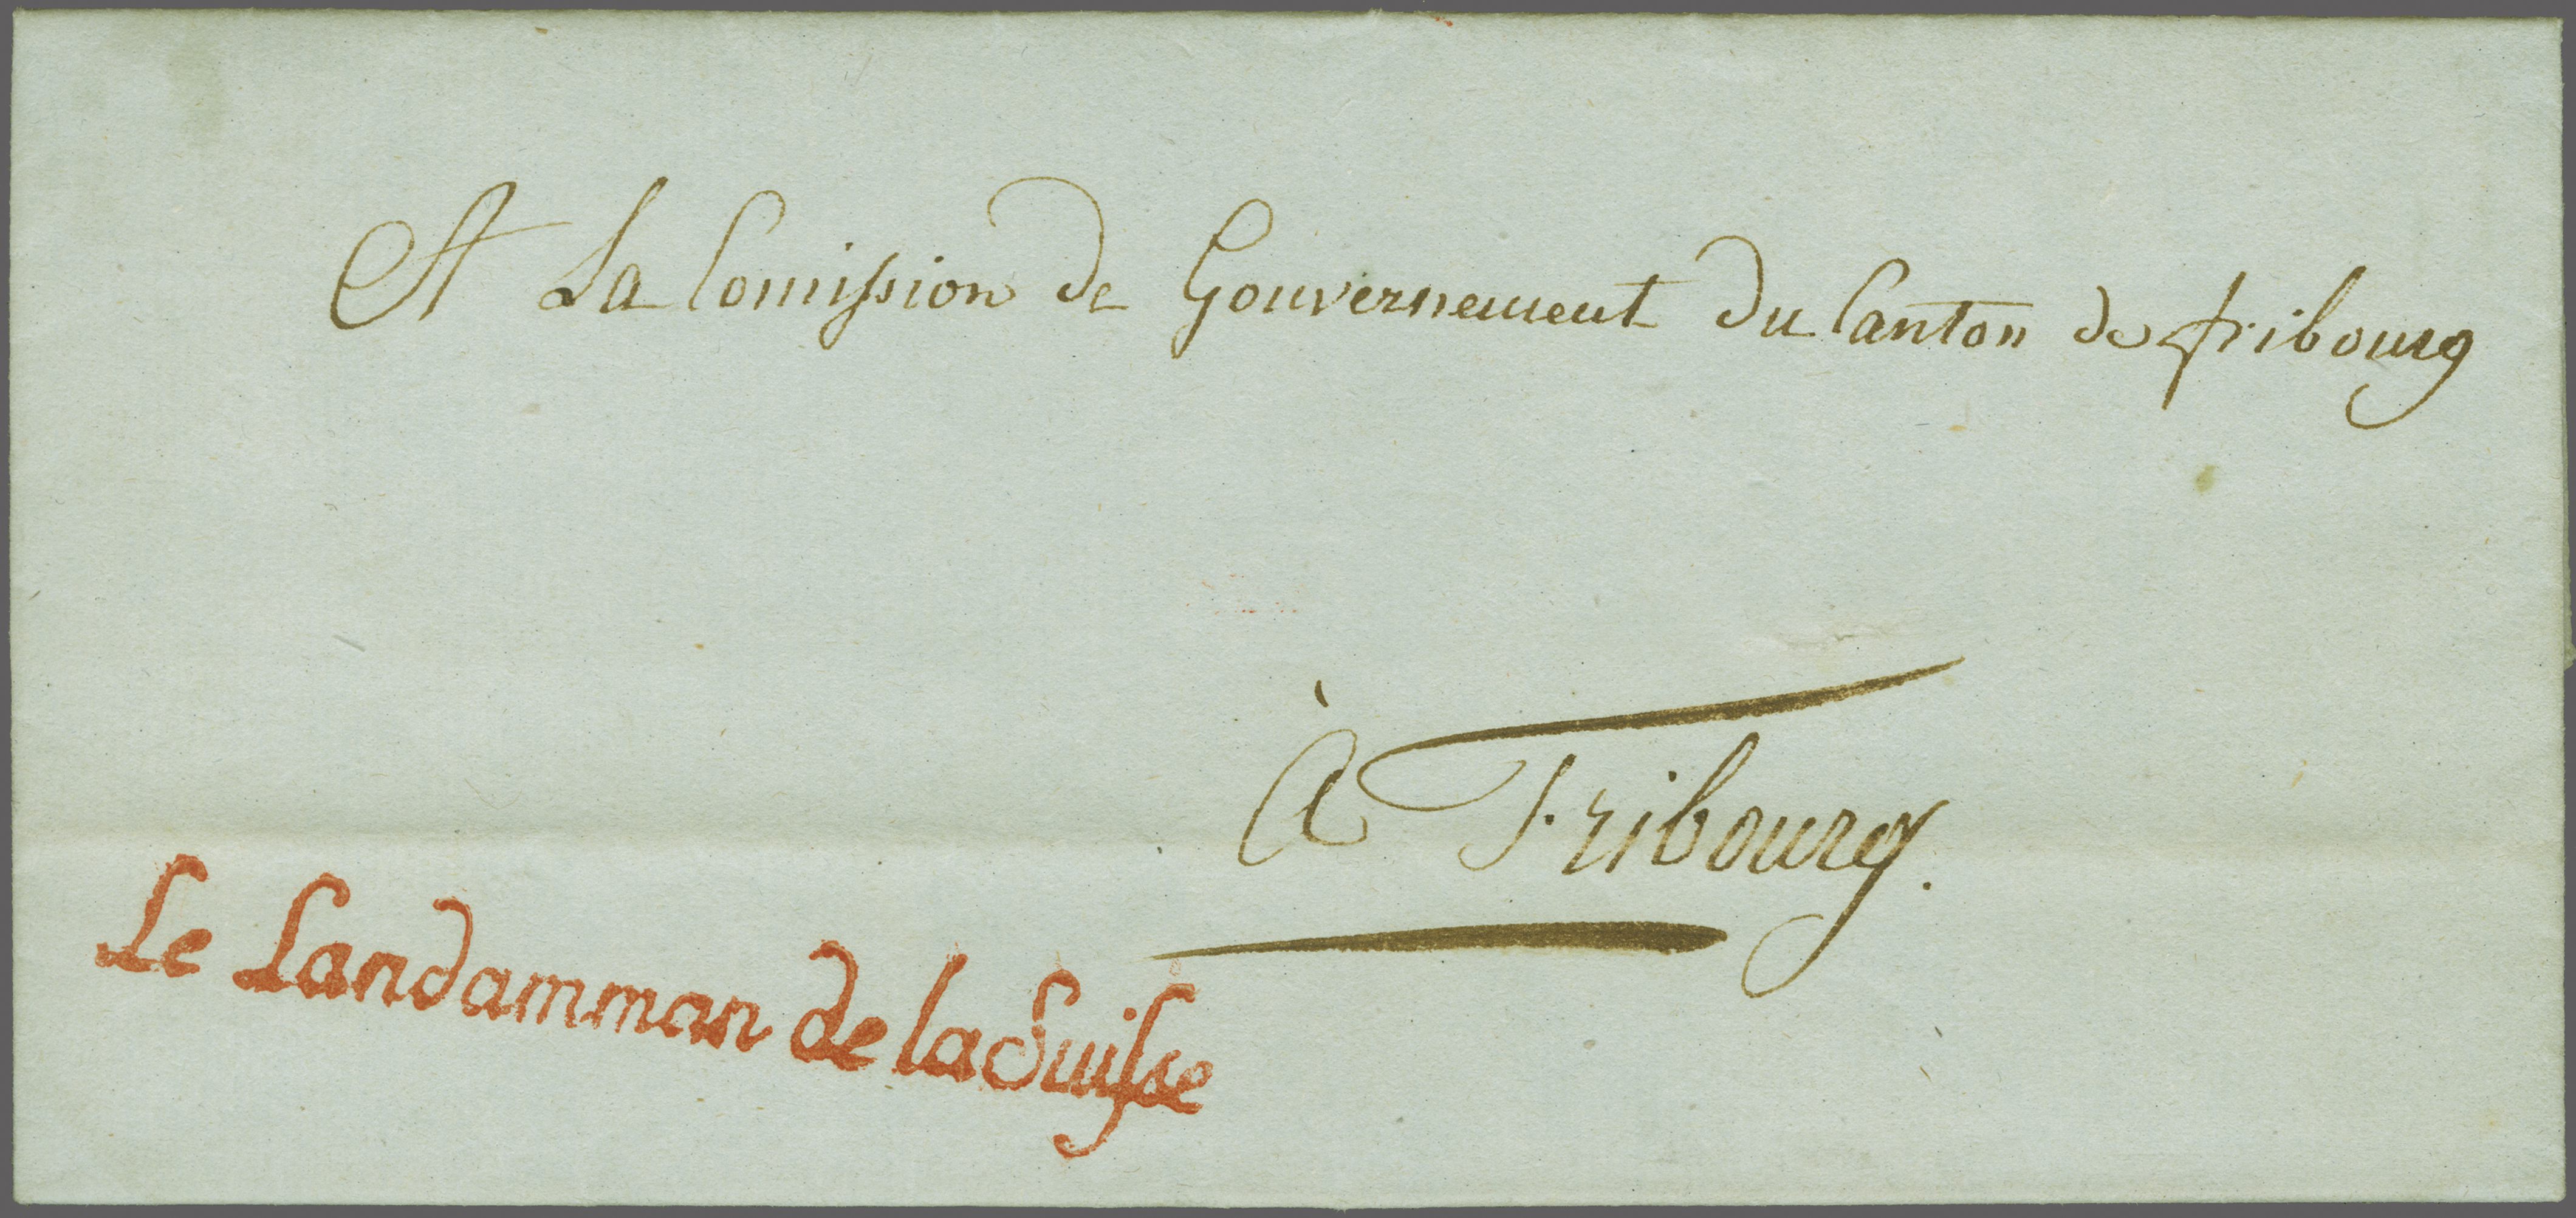 A La Comission de Gouvernement du Canton de fribourg
à Fribourg.
Le Landamman de la Suisse